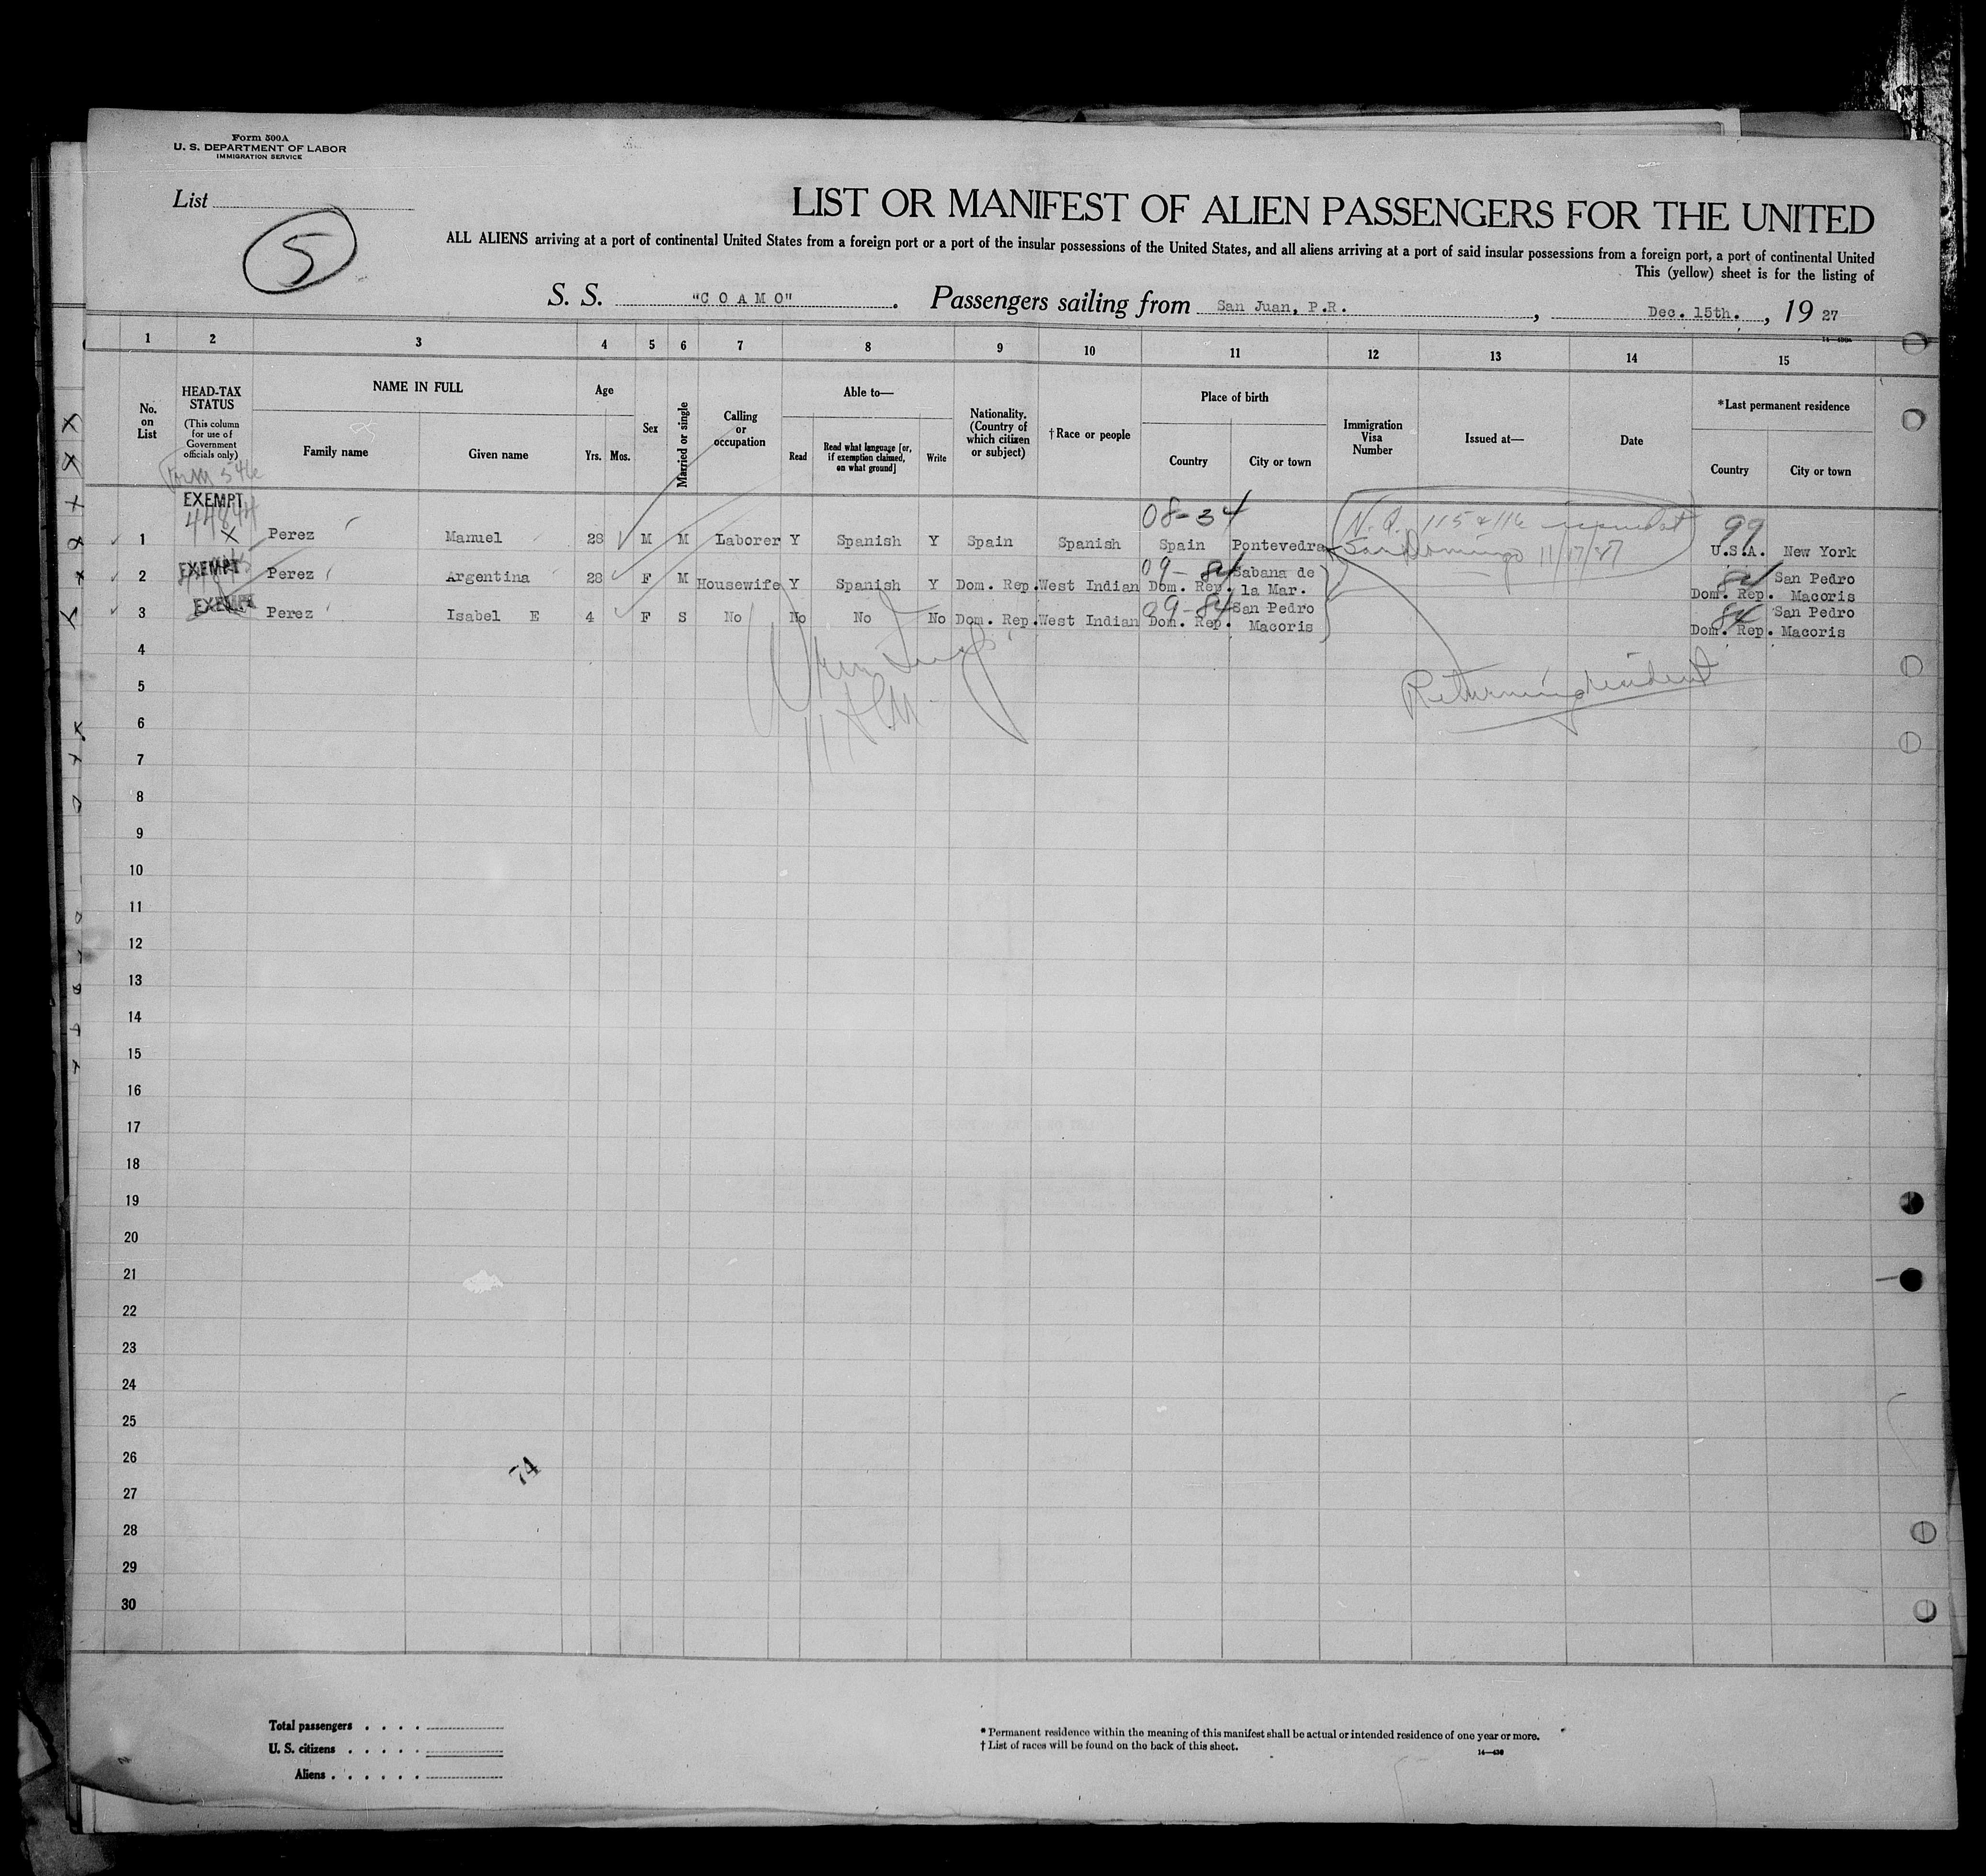 Form 500A
U. S. DEPARTMENT OF LABOR
IMMIGRATION SERVICE
List
5
LIST OR MANIFEST OF ALIEN PASSENGERS FOR THE UNITED
ALL ALIENS arriving at a port of continental United States from a foreign port or a port of the insular possessions of the United States, and all aliens arriving at a port of said insular possessions from a foreign port, a port of continental United
This (yellow) sheet is for the listing of
S. S. "C O A M O". Passengers sailing from San Juan, P.R., Dec. 15th., 1927
1 2 3 4 5 6 7 8 9 10 11 12 13 14 15
No. on List
HEAD-TAX STATUS
(This column for use of Government officials only)
NAME IN FULL
Family name
Given name
Age
Yrs. Mos.
Sex
Married or single
Calling or occupation
Able to—
Read
Read what language [or, if exemption claimed, on what ground]
Write
Nationality. (Country of which citizen or subject)
†Race or people
Place of birth
Country
City or town
Immigration Visa Number
Issued at—
Date
*Last permanent residence
Country
City or town
Form 546
EXEMPT
08-34
99
1 X Perez Manuel 28 M M Laborer Y Spanish Y Spain Spanish Spain Pontevedra U.S.A. New York
San Domingo 11/17/27
09-84
84
2 EXEMPT Perez Argentina 28 F M Housewife Y Spanish Y Dom. Rep. West Indian Dom. Rep. Sabana de la Mar. Dom. Rep. San Pedro Macoris
09-84
84
3 EXEMPT Perez Isabel E 4 F S No No No No Dom. Rep. West Indian Dom. Rep. San Pedro Macoris Dom. Rep. San Pedro Macoris
Returning resident
4
5
6
7
8
9
10
11
12
13
14
15
16
17
18
19
20
21
22
23
24
25
26
74
27
28
29
30
Total passengers . . . .
U. S. citizens . . . . .
Aliens . . . . . .
* Permanent residence within the meaning of this manifest shall be actual or intended residence of one year or more.
† List of races will be found on the back of this sheet.